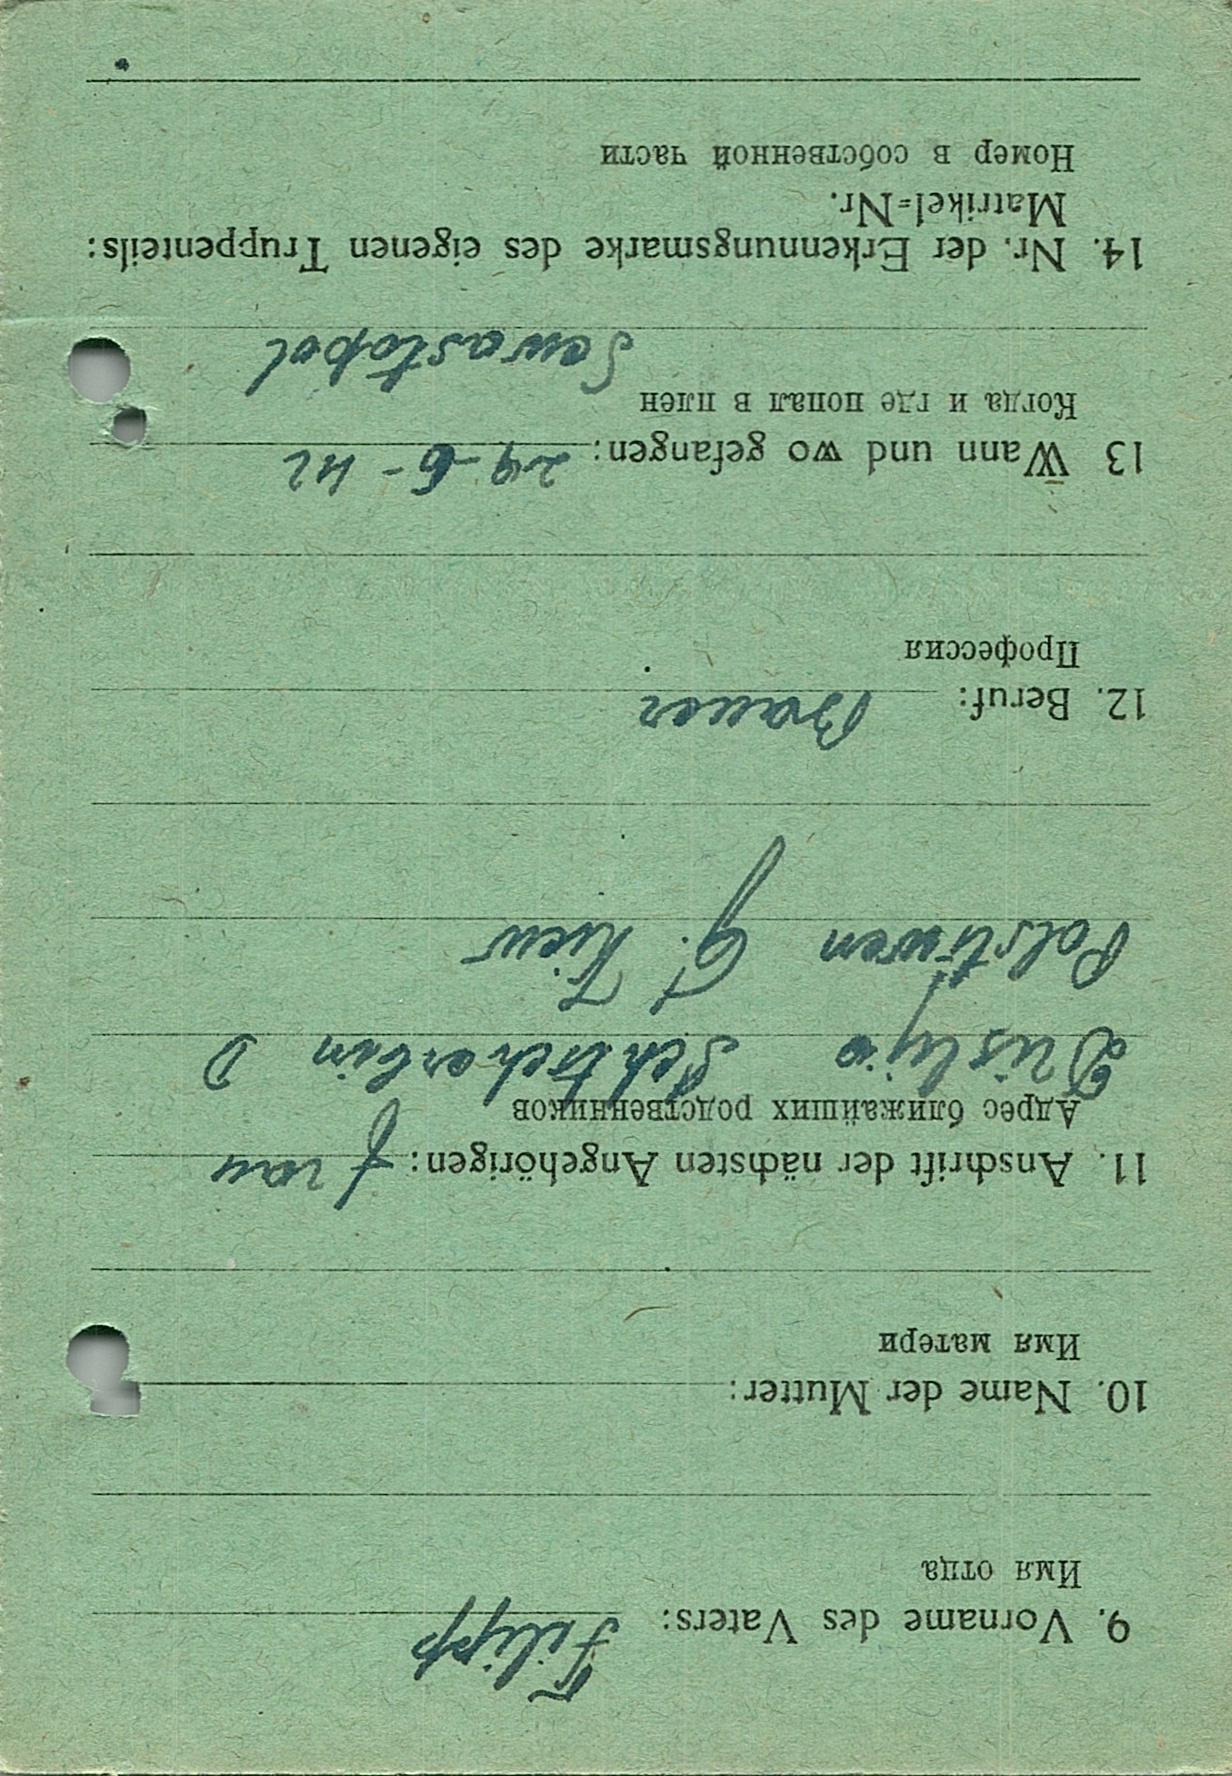 Filipp
9. Vorname des Vaters:
Имя отца
10. Name der Mutter:
Имя матери
11. Anschrift der nächsten Angehörigen: frau
Адрес ближайших родственников
Schtscherbin D
G. Kiew
12. Beruf: Bauer
Профессия
13 Wann und wo gefangen: 29-6-42
Когда и где попал в плен
Sewastopol
14. Nr. der Erkennungsmarke des eigenen Truppenteils:
Matrikel=Nr.
Номер в собственной части